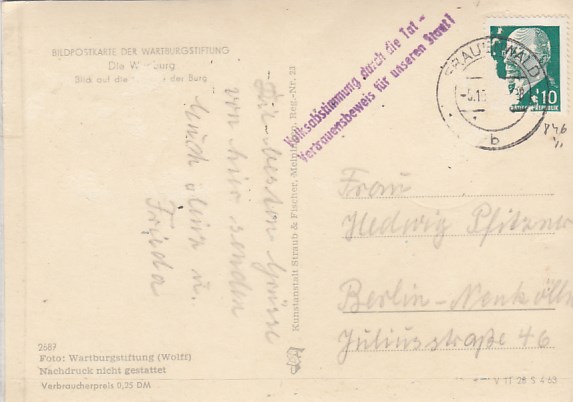 BILDPOSTKARTE DER WARTBURGSTIFTUNG
Die Wartburg
Blick auf die der Burg
Volksabstimmung durch die Tat -
Vertrauensbeweis für unseren Staat!
FRAUENWALD
b
10
Die besten Grüße
von hier senden
Euch u.
Frieda
Kunstanstalt Straub & Fischer, Meiningen, Reg.-Nr. 23
Frau
Hedwig Pfitzner
Berlin-Neukölln
Juliusstraße 46
2687
Foto: Wartburgstiftung (Wolff)
Nachdruck nicht gestattet
Verbraucherpreis 0,25 DM
V 11 28 S 4 63